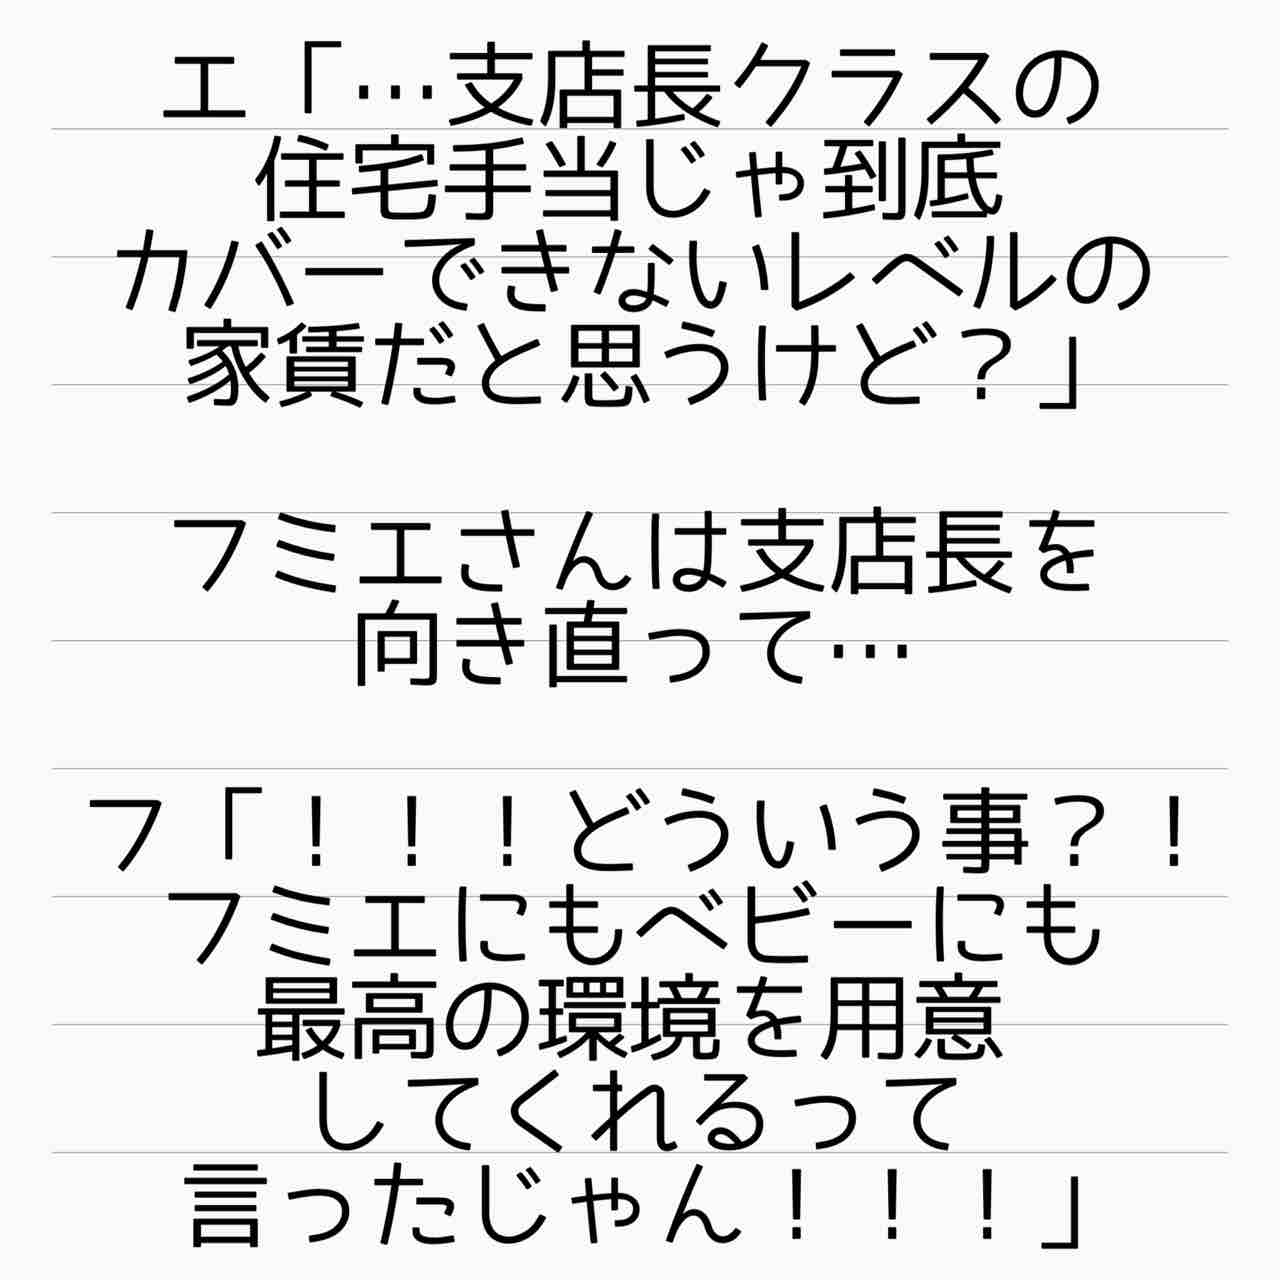 エ「…支店長クラスの
住宅手当じゃ到底
カバーできないレベルの
家賃だと思うけど？」
フミエさんは支店長を
向き直って…
フ「！！！どういう事？！
フミエにもベビーにも
最高の環境を用意
してくれるって
言ったじゃん！！！」